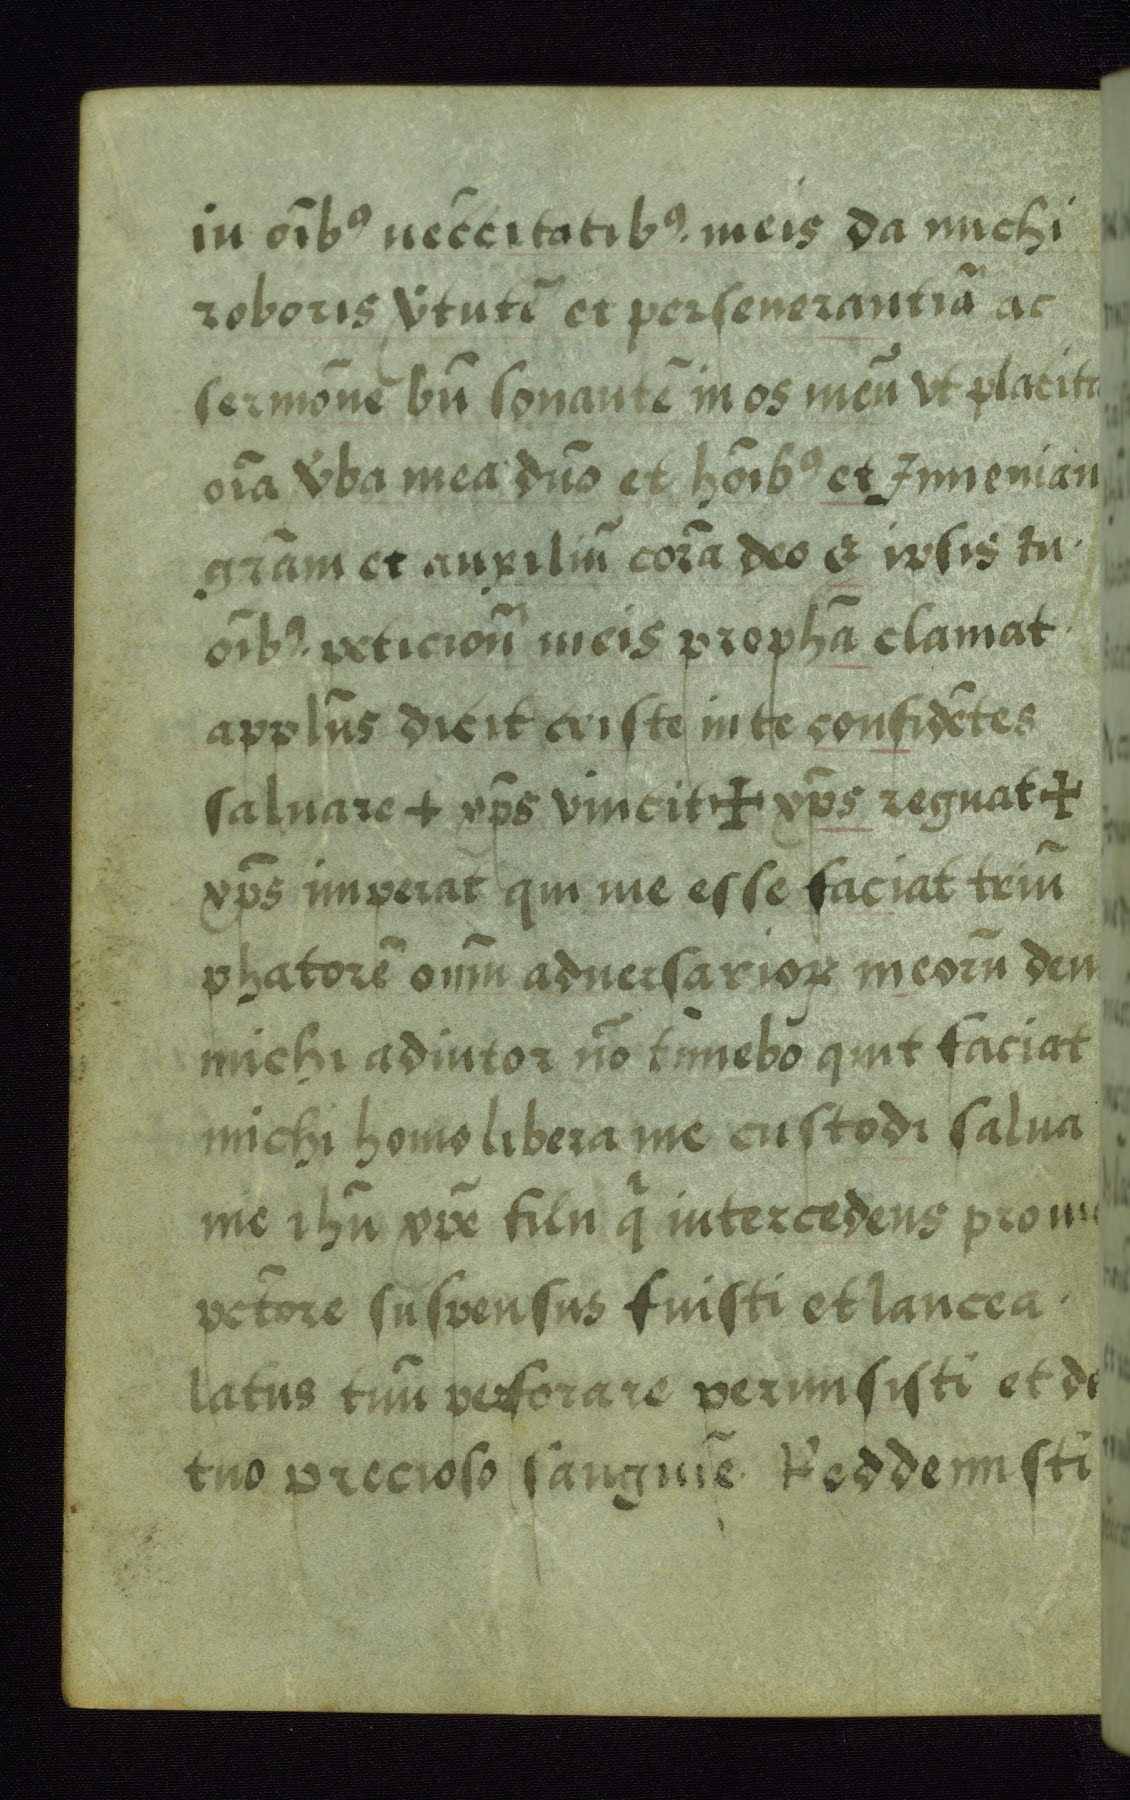 in oĩbꝰ nec̃citatibꝰ. meis da michi
roboris v̉tutẽ et perseuerantiã ac
sermõnẽ bñ sonantẽ in os meũ vt placita
oĩa v̉ba mea dño et hõibꝰ et Inueniam
grãm et auxiliũ corã deo & ipsis In
oĩbꝰ. peticioñ meis prophã clamat
applũs dicit criste in te confidẽtes
saluare + xp̃s vincit ✠ xp̃s regnat ✠
xp̃s imperat qui me esse faciat triũ
phatorẽ oniũ aduersarioꝝ meorũ
michi adiutor nõ timebo quit faciat
michi homo libera me custodi salua
me ihũ xp̃e filii q̉ intercedens pro me
pctõre suspensus fuisti et lancea
latus tuũ perforare permisisti et de
tuo precioso sanguiẽ. Reddemisti